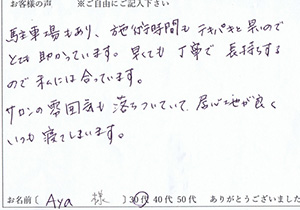 お客様の声　※ご自由にご記入下さい
駐車場もあり、施術時間もテキパキと早いので
とても助かっています。早くても丁寧で長持ちする
ので私には合っています。
サロンの雰囲気も落ちついていて、居心地が良く
いつも寝てしまいます。
お名前（ Aya 様 ）30代 40代 50代　ありがとうございました